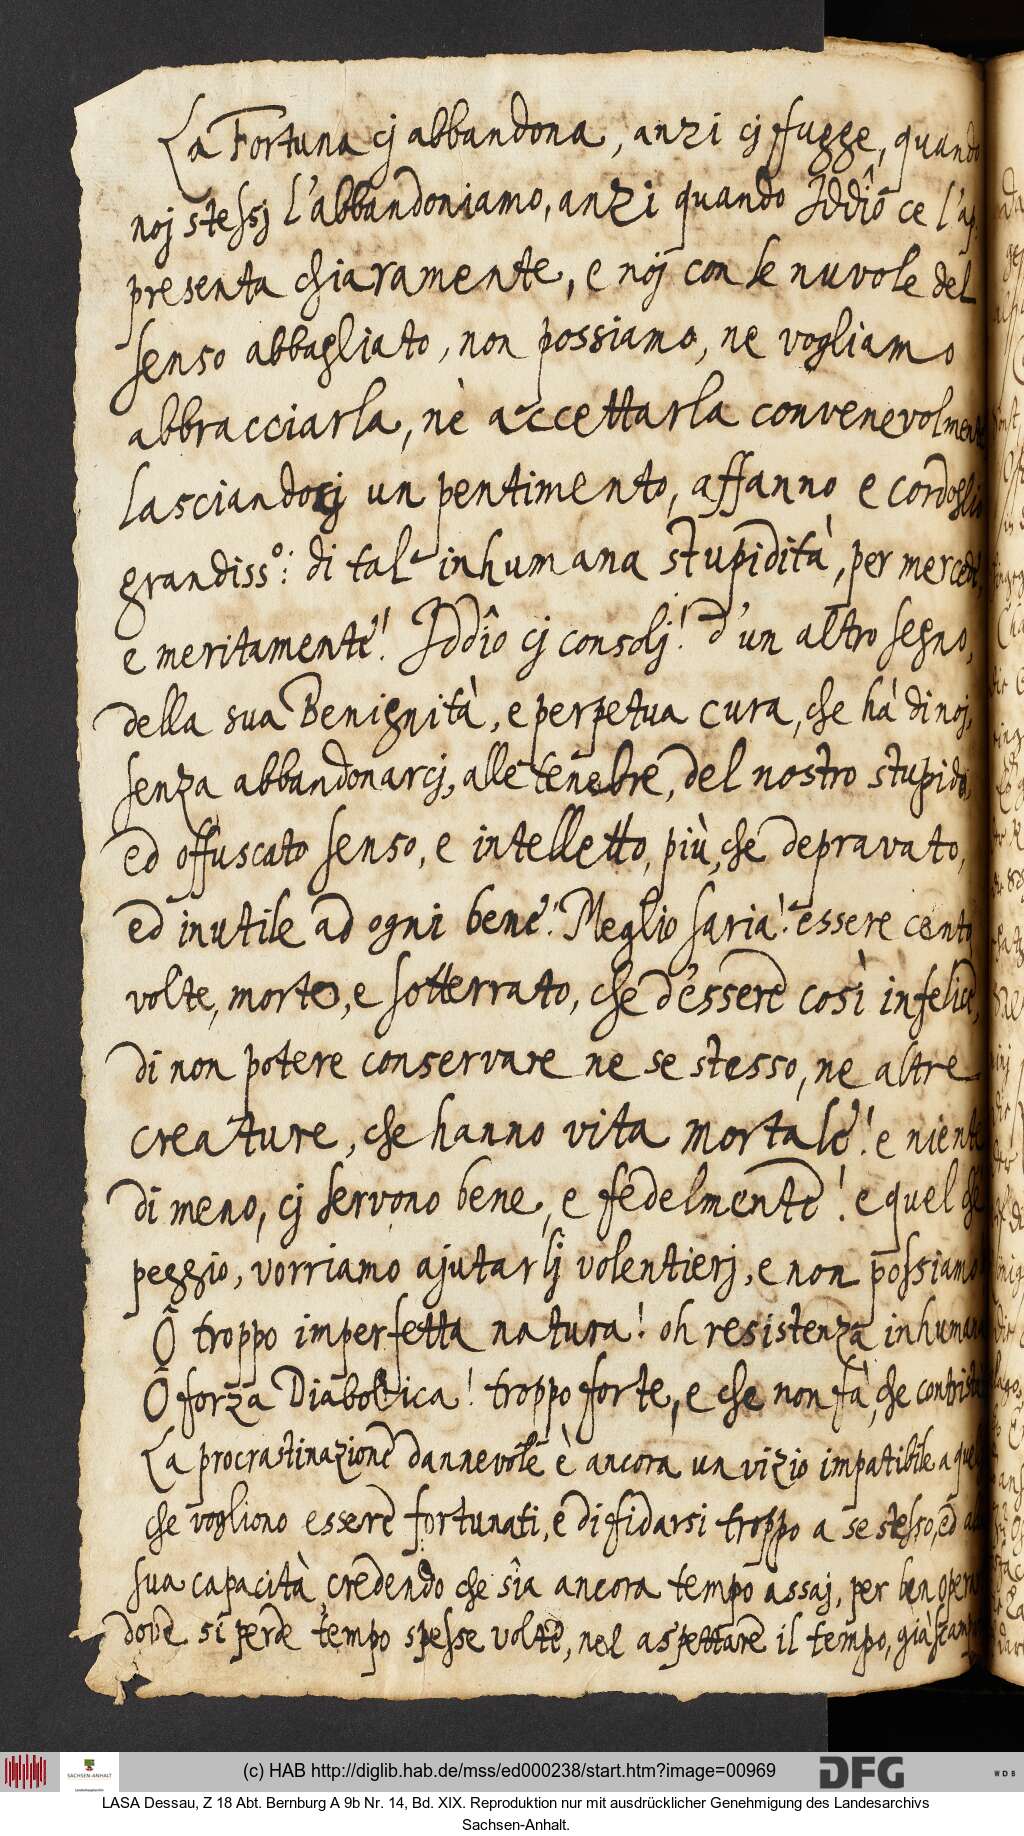 La Fortuna cj abbandona, anzi cj fugge, quando
noj stessj l'abbandoniamo, anzi quando Iddîo ce l'ap-
presenta chiaramente, e noj con le nuvole del
senso abbagliato, non possiamo, ne vogliamo
abbracciarla, nè accettarla convenevolmente
lasciandocj un pentimento, affanno e cordoglio
grandissº: di tal inhumana stupidità, per mercede,
e meritamente! Iddîo cj consolj! d'un altro segno,
della sua Benignità, e perpetua cura, che há di noj,
senza abbandonarcj, alle tenebre, del nostro stupido,
ed offuscato senso, e intelletto, più, che depravato,
ed inutile ad ogni bene! Meglio saria! essere cento
volte, morto, e sotterrato, che d'essere così infelice,
di non potere conservare ne se stesso, ne altre
creature, che hanno vita mortale! e niente
di meno, cj servono bene, e fedelmente! e quel che
peggio, vorriamo ajutarlj volentierj, e non possiamo
Õ troppo imperfetta natura! oh resistenza inhumana
Õ forza Diabolica! troppo forte, e che non fà, che contristar
La procrastinazione dannevole è ancora un vizio impatibile a quei
che vogliono essere fortunati, e di fidarsi troppo a se stesso, ed alla
sua capacità, credendo che sîa ancora tempo assaj, per ben operar
dove si perde tempo spesse volte, nel aspettare il tempo, già
(c) HAB http://diglib.hab.de/mss/ed000238/start.htm?image=00969
SACHSEN-ANHALT
DFG
WDB
LASA Dessau, Z 18 Abt. Bernburg A 9b Nr. 14, Bd. XIX. Reproduktion nur mit ausdrücklicher Genehmigung des Landesarchivs
Sachsen-Anhalt.